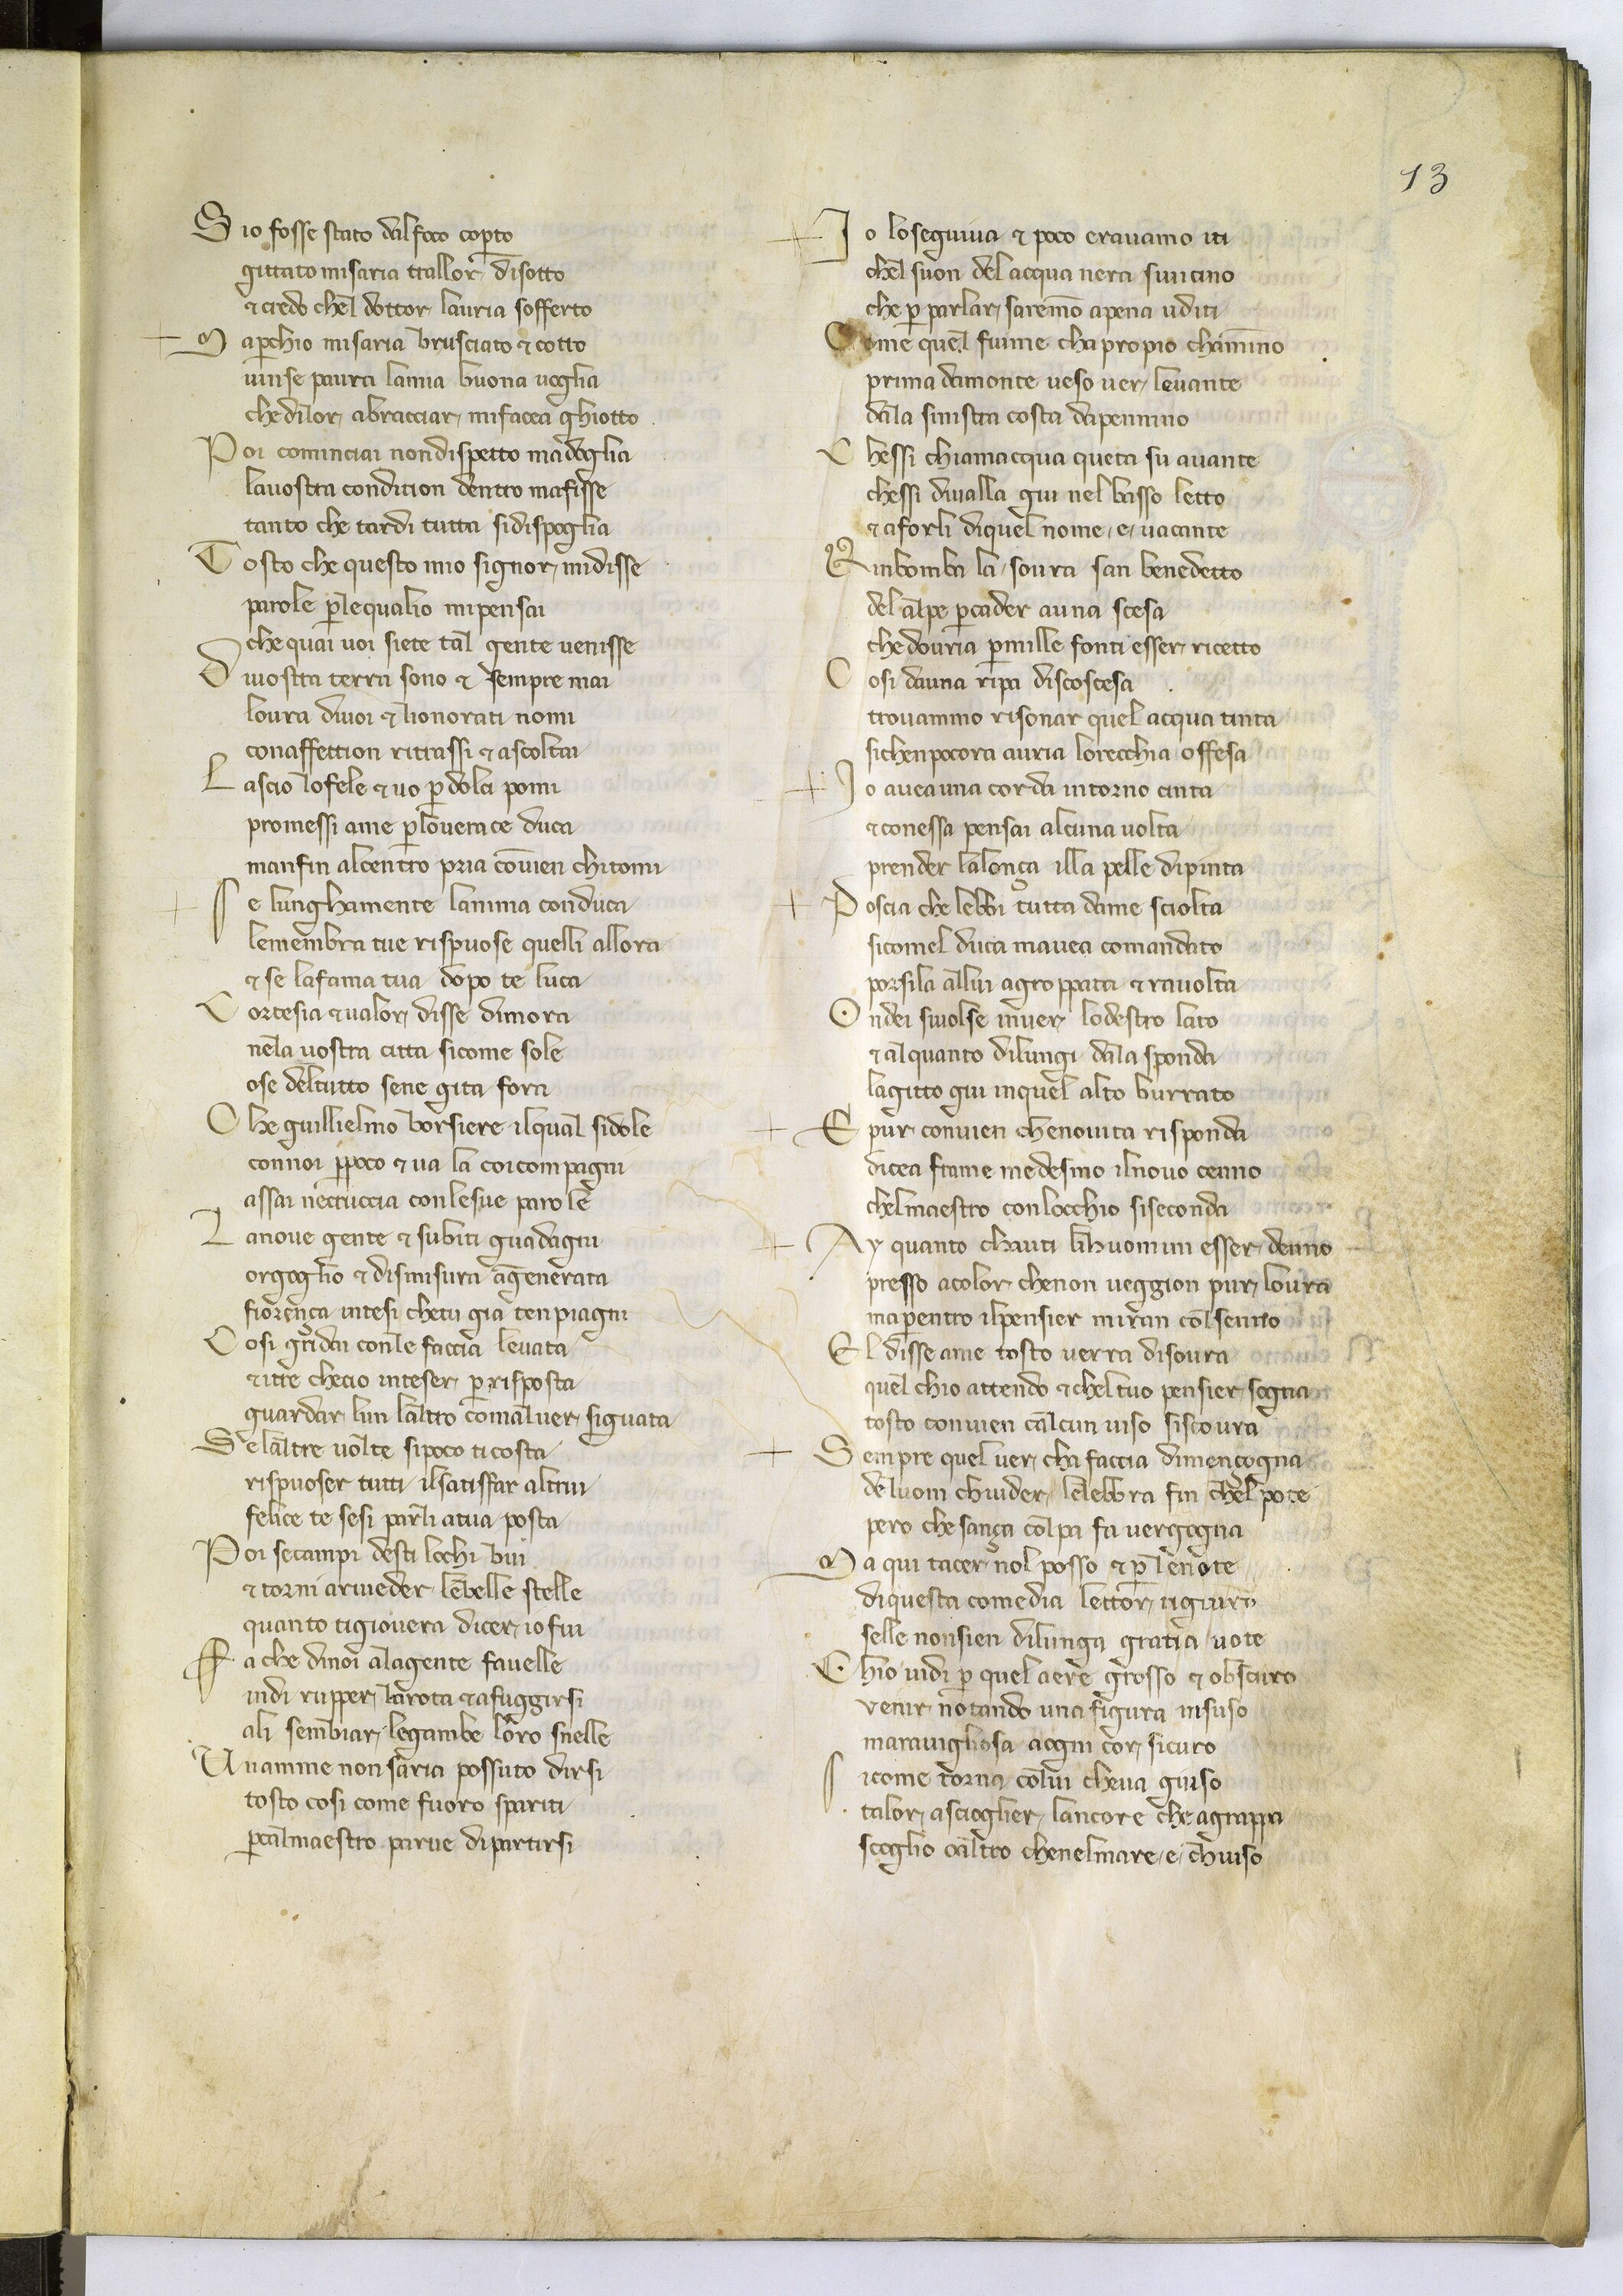 13
S io fosse stato dal foco coperto
gittato misaria trallor disotto
& credo chel dottor lauria sofferto
M a perchio misaria brusciato & cotto
uinse paura lamia buona uoglia
chedilor abracciar mifacea ghiotto
P oi cominciai nondispetto madoglia
lauostra condition dentro mafisse
tanto che tardi tutta sidispoglia
T osto che questo mio signor midisse
parole perlequalio mipensai
che quai uoi siete tal gente uenisse
D iuostra terra sono & sempre mai
loura diuoi & lhonorati nomi
conaffettion ritrassi & ascoltai
L ascio lofele & uo per dolci pomi
promessi ame perlouerace duca
manfin alcentro pria conuien chitomi
S e lunghamente lanima conduca
lemembra tue rispuose quelli allora
& se lafama tua dopo te luca
C ortesia & ualor disse dimora
nela uostra citta sicome sole
ose deltutto sene gita fora
C he guillielmo borsiere ilqual sidole
connoi perpoco & ua la coicompagni
assai necruccia conlesue parole
L anoue gente & subiti guadagni
orgoglio & dismisura agenerata
fiorença intesi chetu gia ten piagni
C osi gridai conle faccia leuata
& itre checio inteser per risposta
guardar lun laltro comaluer siguata
S e laltre uolte sipoco ti costa
rispuoser tutti ilsatisfar altrui
felice te sesi parli atua posta
P oi secampi desti lochi bui
& torni ariueder lebelle stelle
quanto tigiouera dicer io fui
F a che dinoi alagente fauelle
indi rupper larota & afuggirsi
ali sembiar legambe loro snelle
U namme non saria possuto dirsi
tosto cosi come fuoro spariti
percalmaestro parue dipartirsi
I o loseguiua & poco erauamo iti
chel suon del acqua nera siuicino
che per parlar saremo apena uditi
C ome quel fiume cha propio chamino
prima damonte ueso uer leuante
dala sinistra costa dapennino
C hessi chiamacqua queta su auante
chessi diualla giu nel basso letto
& aforli diquel nome e uacante
R inbomba la soura san benedetto
del alpe percader auna scesa
chedouria permille fonti esser ricetto
C osi dauna ripa discoscesa
trouammo risonar quel acqua tinta
sichenpocora auria lorecchia offesa
I o auea una corda intorno cinta
& conessa pensai alcuna uolta
prender lalonça illa pelle dipinta
P oscia che lebbi tutta dame sciolta
sicomel duca mauea comandato
porsila allui agroppata & rauolta
O ndei siuolse inuer lodestro lato
& alquanto dilungi dala sponda
lagitto giu inquel alto burrato
E pur conuien chenouita risponda
dicea frame medesmo ilnouo cenno
chelmaestro conlocchio siseconda
A y quanto chauti lihuomini esser denno
presso acolor chenon ueggion pur loura
maperentro ilpensier miran colsenno
E l disse ame tosto uerra disoura
quel chio attendo & cheltuo pensier sogna
tosto conuien calcun uiso siscoura
S empre quel uer cha faccia dimençogna
deluom chiuder lelebbra fin chel pote
pero che sança colpa fa uergogna
M a qui tacer nol posso & per lenote
diquesta comedia lettor tigiuro
selle nonsien dilunga gratia uote
C hio uidi per quel aere grosso & obscuro
venir notando una figura insuso
marauigliosa aogni cor sicuro
S icome torna colui cheua giuso
talor ascioglier lancore che agrappa
scoglio oaltro chenelmare e chiuso